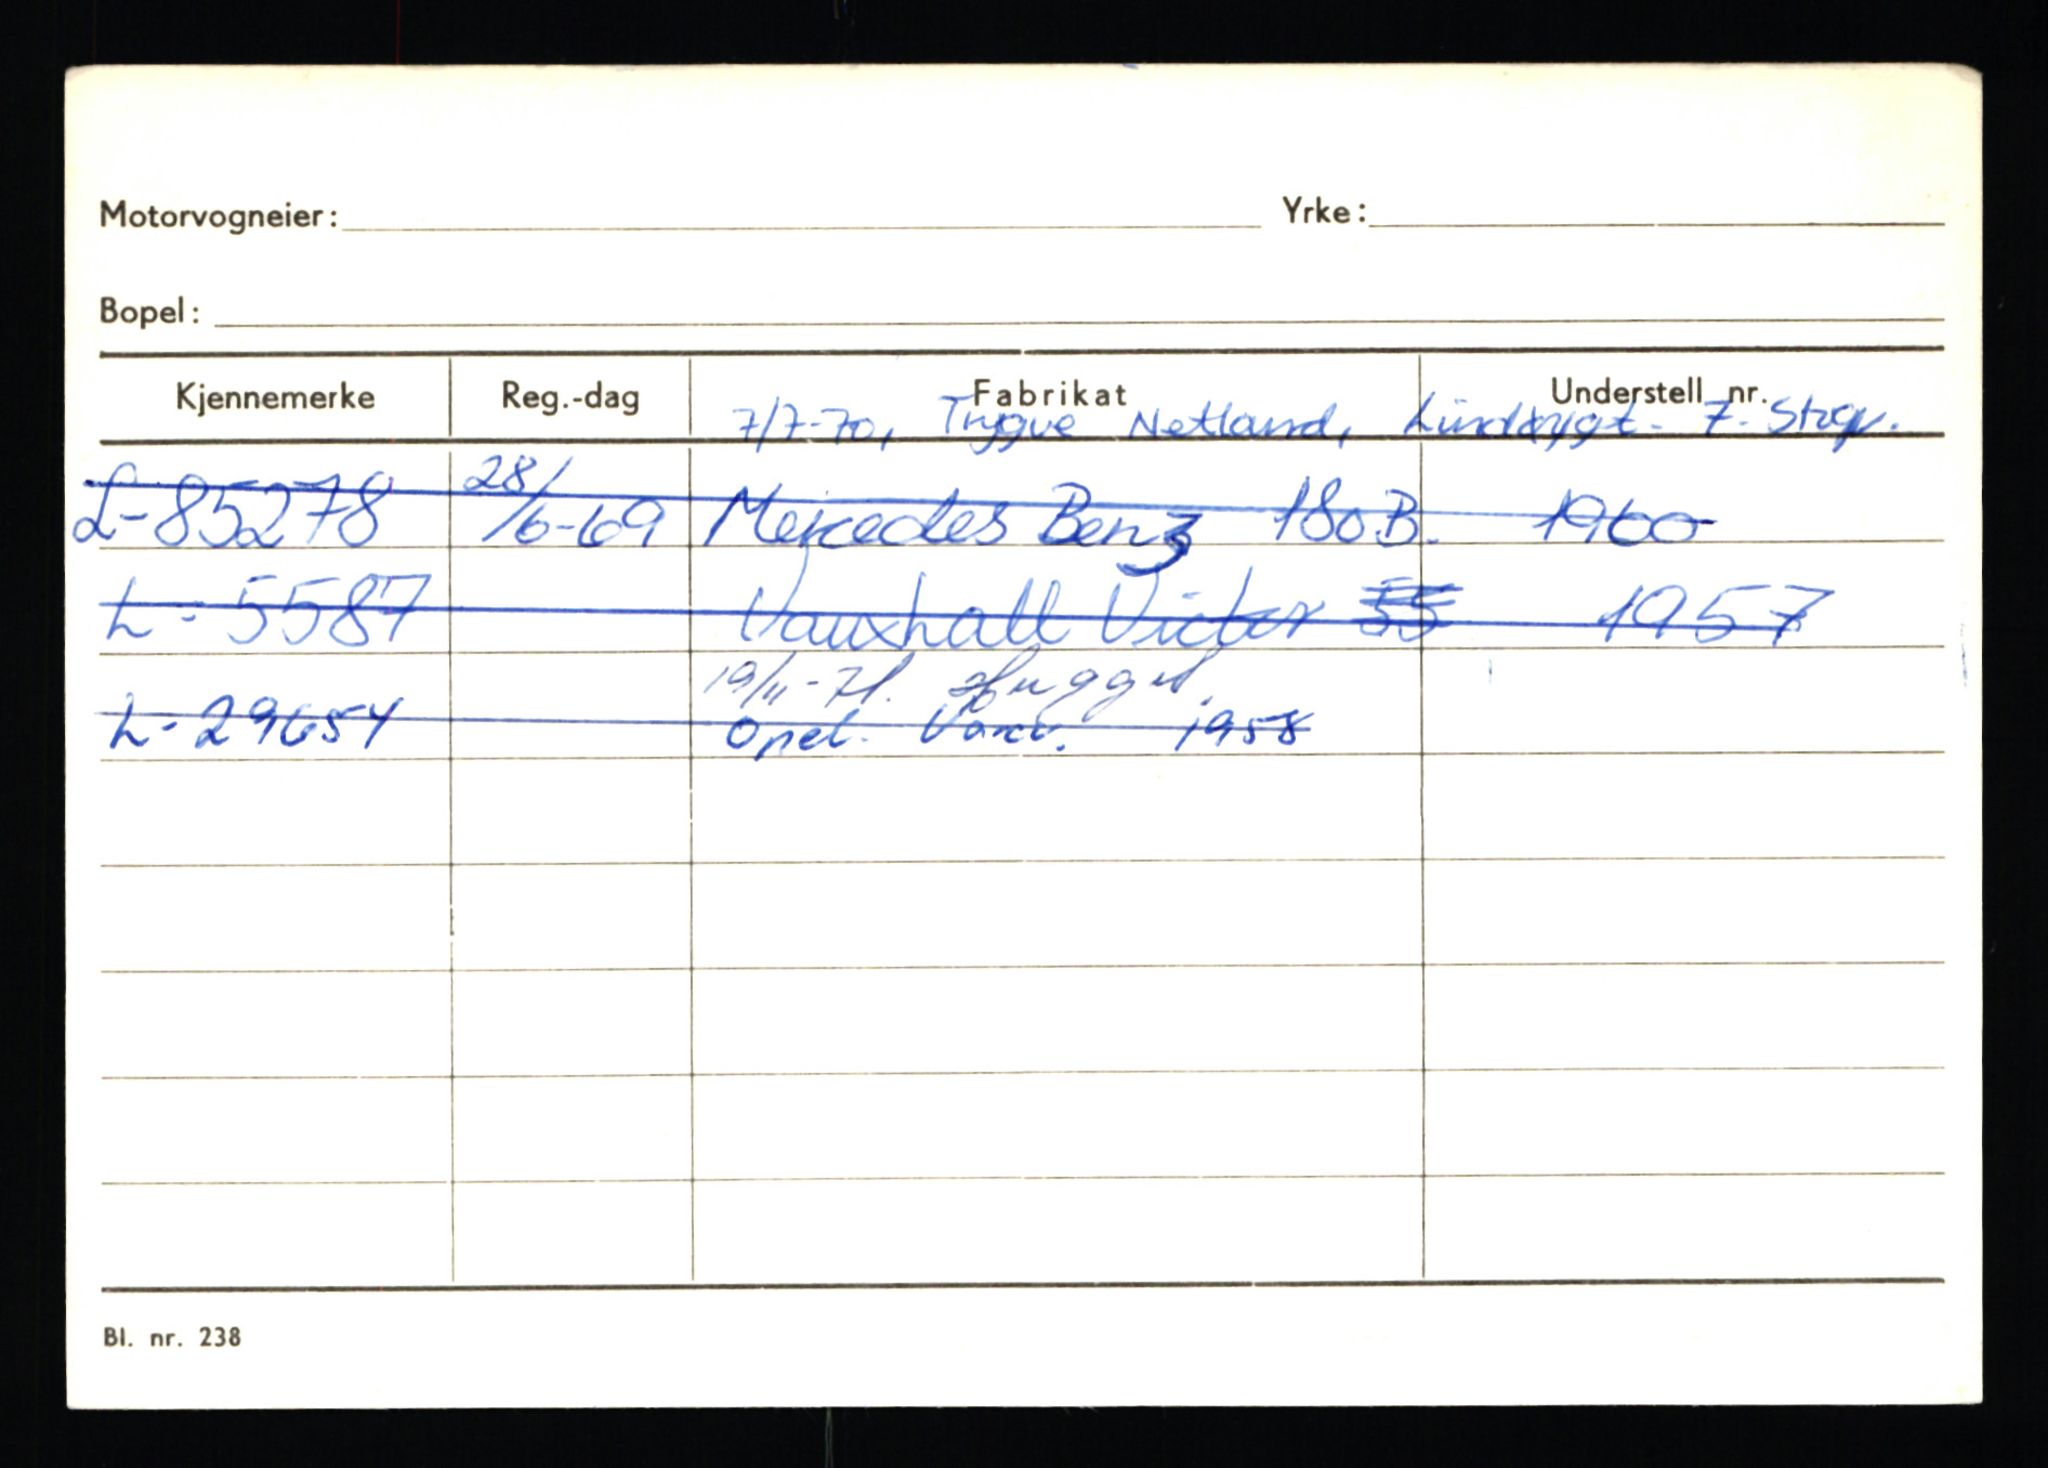 Motorvogneier: Yrke:
Bopel:
Kjennemerke Reg.-dag Fabrikat Understell nr.
7/7-70, Trygve Netland, Lundbygt. 7. Stvgr.
L-85278 28/6-69 Mercedes Benz 180B. 1960
L-5587 Vauxhall Victor 55 1957
19/11-71. Hugget.
L-29654 Opel. 1958
Bl. nr. 238